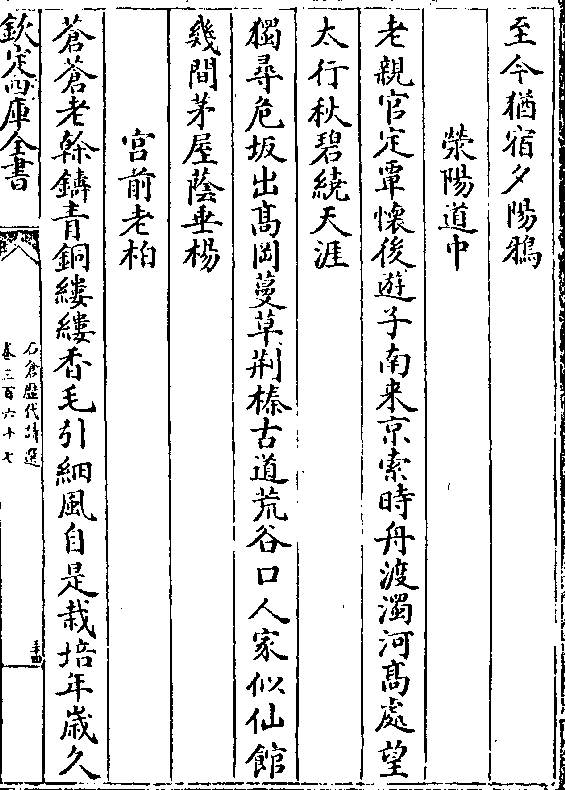 至今猶宿夕陽鴉
滎陽道中
老親官定覃懷後遊子南来京索時舟渡濁河髙處望
太行秋碧繞天涯
獨尋危坂出髙岡蔓草荆榛古道荒谷口人家似仙館
幾間茅屋蔭垂楊
宫前老柏
蒼蒼老榦鑄青銅縷縷香毛引細風自是栽培年嵗久
欽定四庫全書
石倉歴代詩選
卷三百六十七